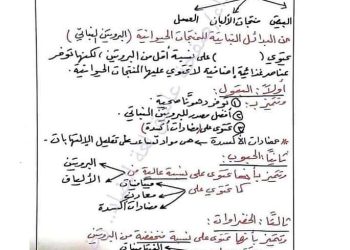 البيض منتجات الألبان العسل
من البدائل النباتية للمنتجات الحيوانية (البروتين النباتي)
تحتوي ( ) على نسبة أقل من البروتين، لكنها توفر
عناصر غذائية إضافية لا تحتوي عليها المنتجات الحيوانية.
أولاً: البقول:
وتتميز بـ: ① توفر دهونًا صحية
② أفضل مصدر للبروتين النباتي
③ تحتوي على (مضادات أكسدة)
* مضادات الأكسدة ← هي مواد تساعد على تقليل الالتهابات.
ثانيًا: الحبوب:
وتتميز بأنها تحتوي على نسبة عالية من البروتين
الألياف
كما تحتوي على فيتامينات
معادن
مضادات أكسدة
ثالثًا: الخضراوات:
وتتميز بأنها تحتوي على نسبة منخفضة من البروتين